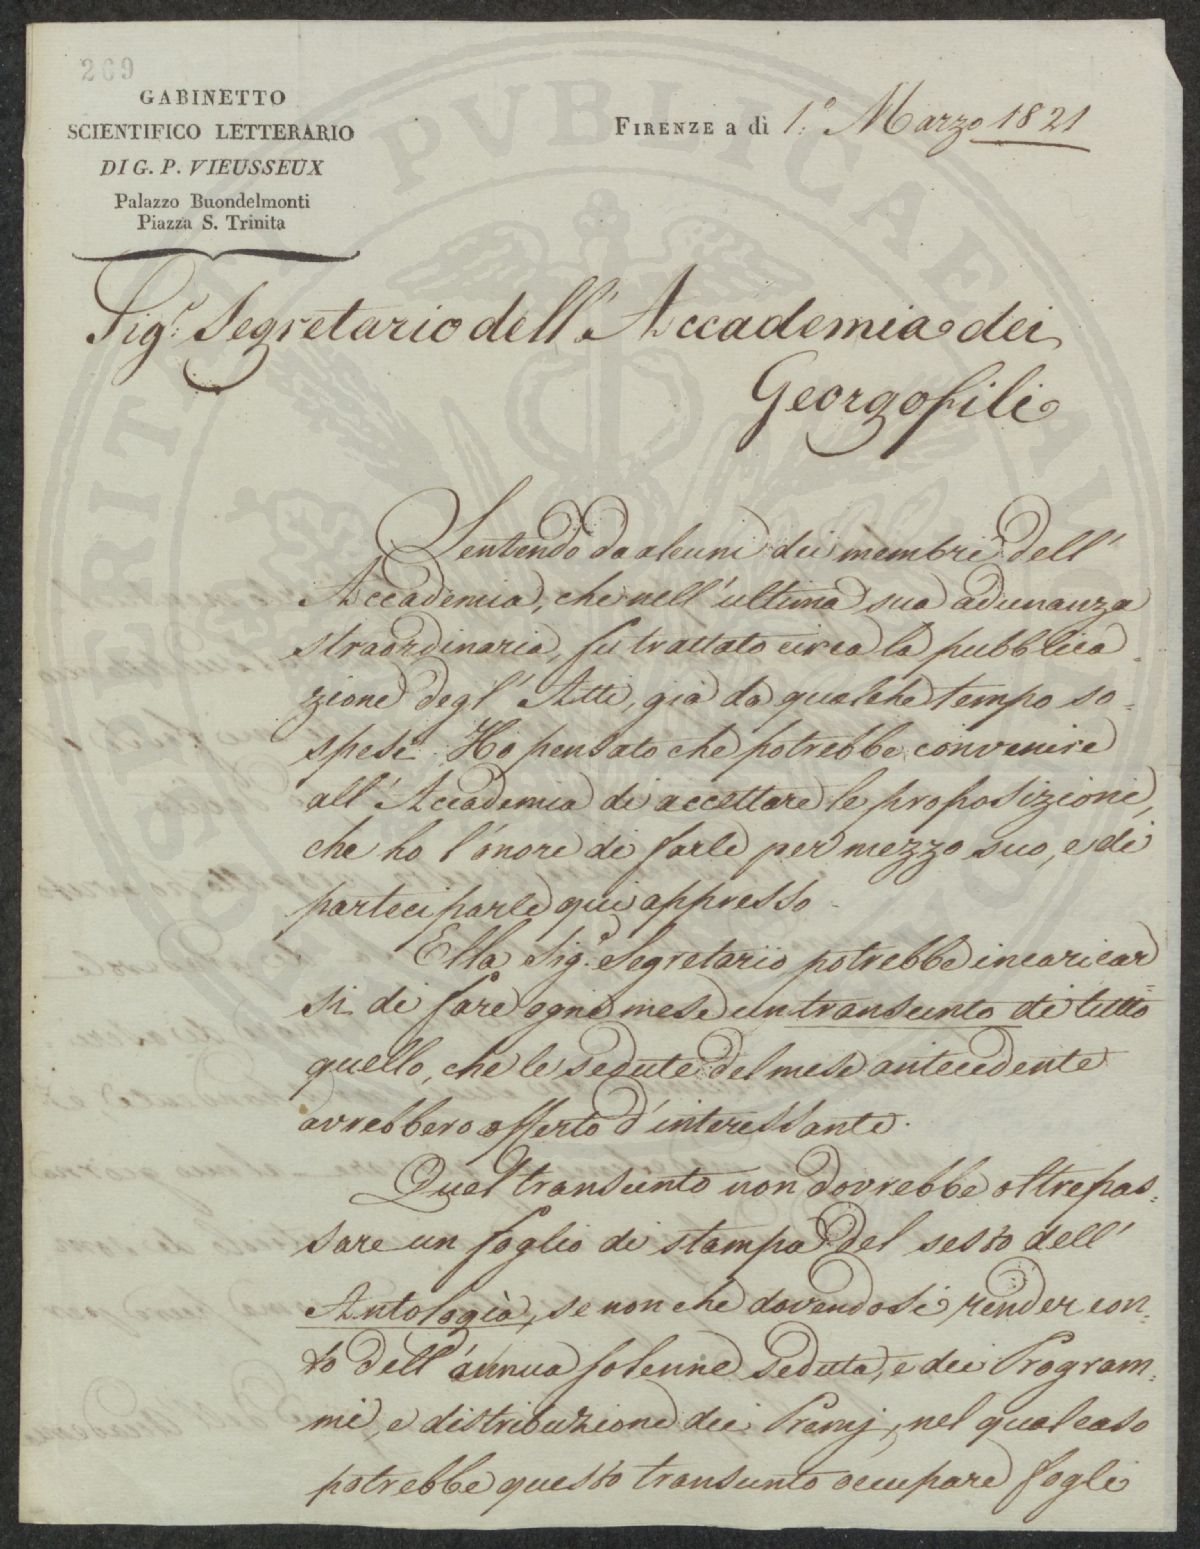 269
GABINETTO
SCIENTIFICO LETTERARIO
DI G. P. VIEUSSEUX
Palazzo Buondelmonti
Piazza S. Trinita
FIRENZE a dì 1.° Marzo 1821
Sig.r Segretario dell'Accademia dei
Georgofili
Sentendo da alcuni dei membri dell'
Accademia, che nell'ultima sua adunanza
straordinaria, fu trattato circa la pubblica
zione degl'Atti, già da qualche tempo so-
spesi. Ho pensato che potrebbe convenire
all'Accademia di accettare le proposizioni,
che ho l'onore di farle per mezzo suo, e di
parteciparle qui appresso.
Ella Sig.r Segretario potrebbe incaricar
si di fare ogni mese un transunto di tutto
quello, che le sedute del mese antecedente
avrebbero offerto d'interessante.
Quel transunto non dovrebbe oltrepas-
sare un foglio di stampa del sesto dell'
Antologia, se non che dovendosi render con-
to dell'annua solenne seduta, e dei Program-
mi, e distribuzione dei Premj, nel qual caso
potrebbe questo transunto occupare fogli